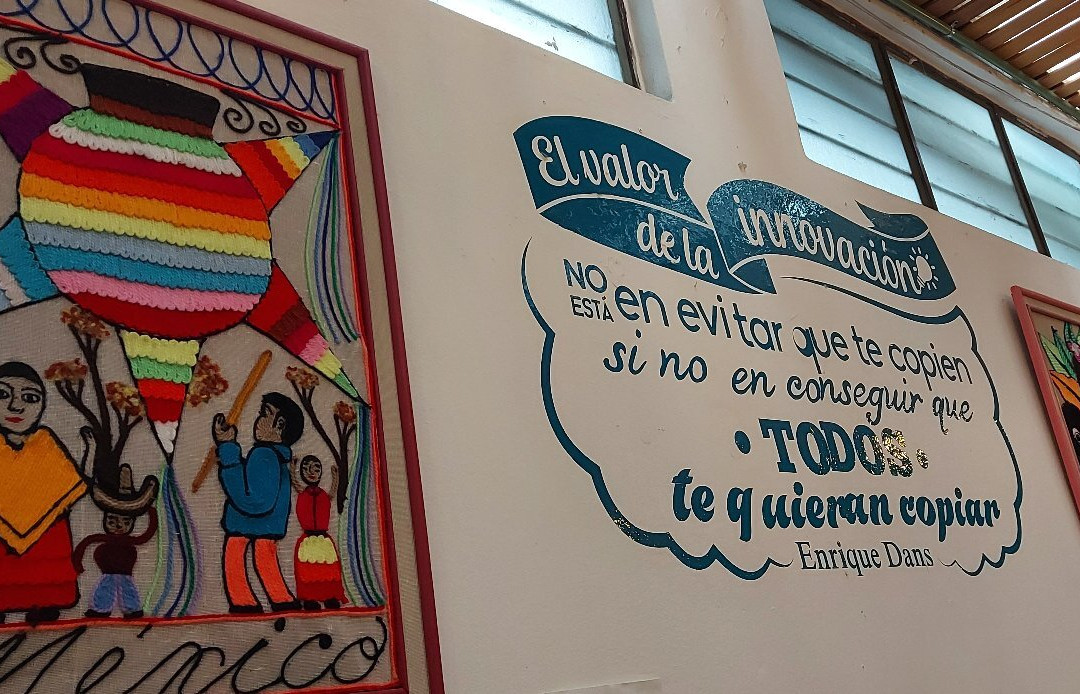 México
El valor
de la
innovación
NO
ESTÁ en evitar que te copien
si no en conseguir que
• TODOS •
te quieran copiar
Enrique Dans